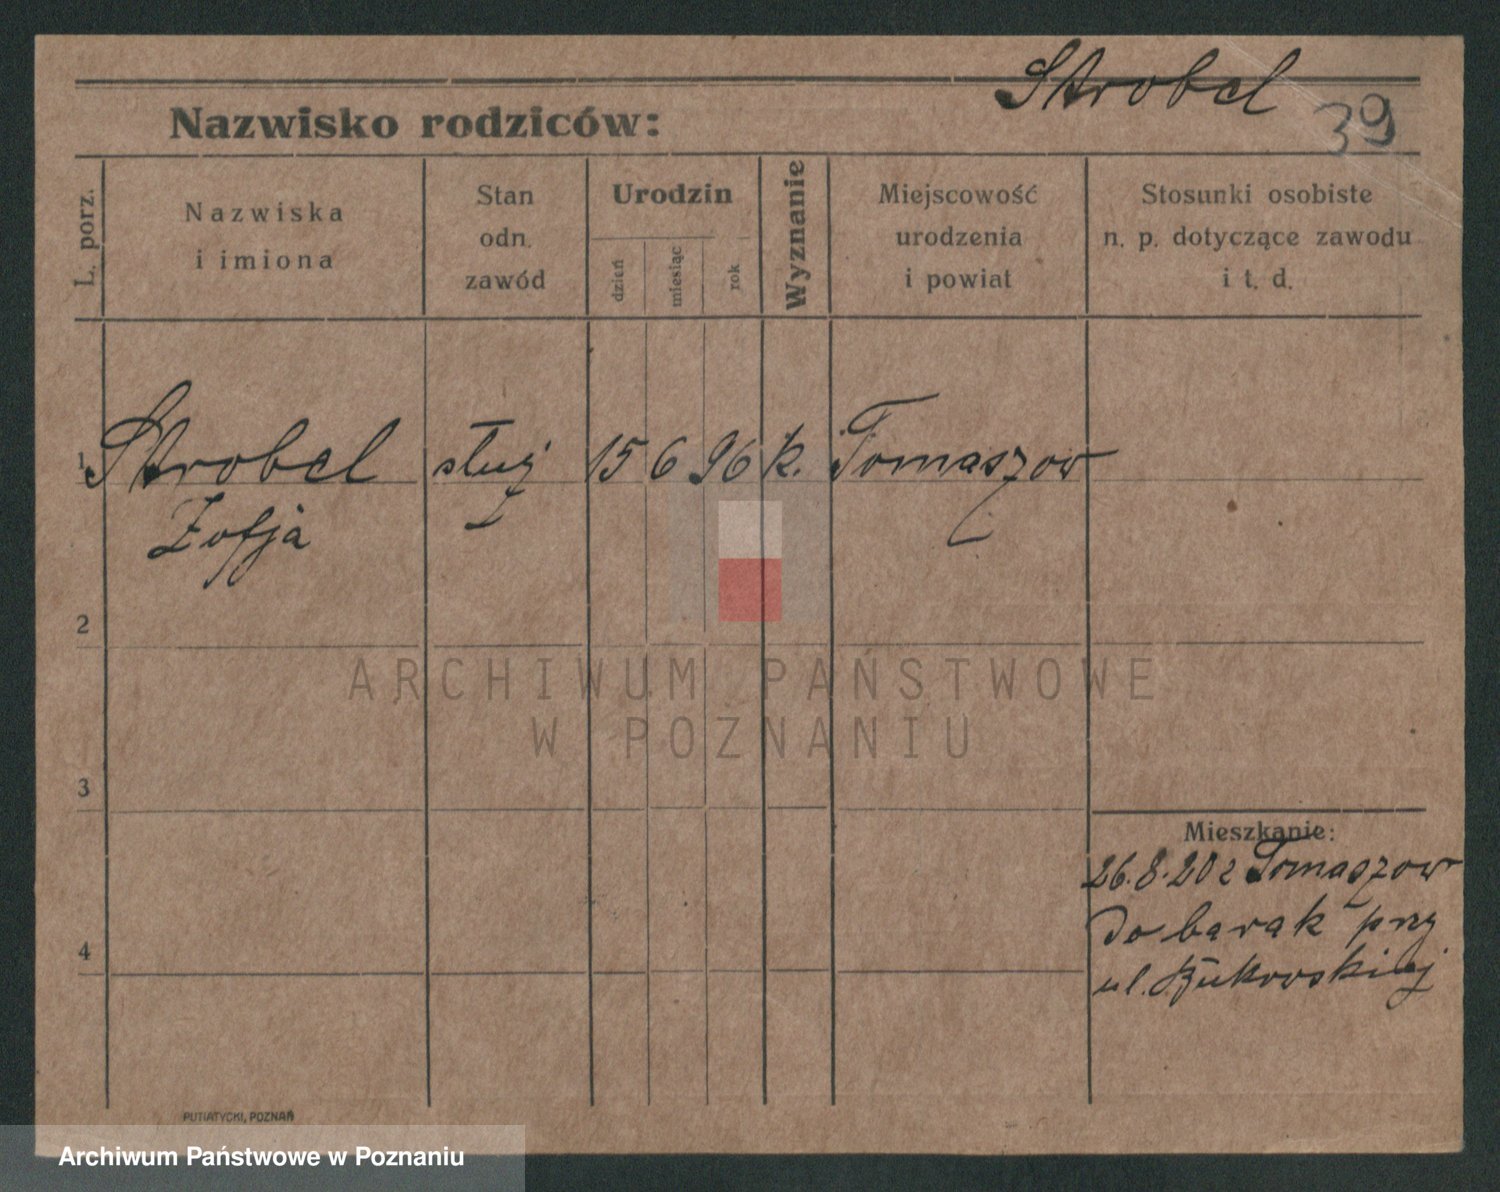 Strobel
39
Nazwisko rodziców:
L. porz.
Nazwiska
i imiona
Stan
odn.
zawód
Urodzin
dzień
miesiąc
rok
Wyznanie
Miejscowość
urodzenia
i powiat
Stosunki osobiste
n. p. dotyczące zawodu
i t. d.
1 Strobel służ 15 6 96 k. Tomaszow
Zofja
2
ARCHIWUM PAŃSTWOWE
W POZNANIU
3
Mieszkanie:
26.8.20 z Tomaszow
do barak przy
4
ul. Bukowskiej
PUTIATYCKI, POZNAŃ
Archiwum Państwowe w Poznaniu